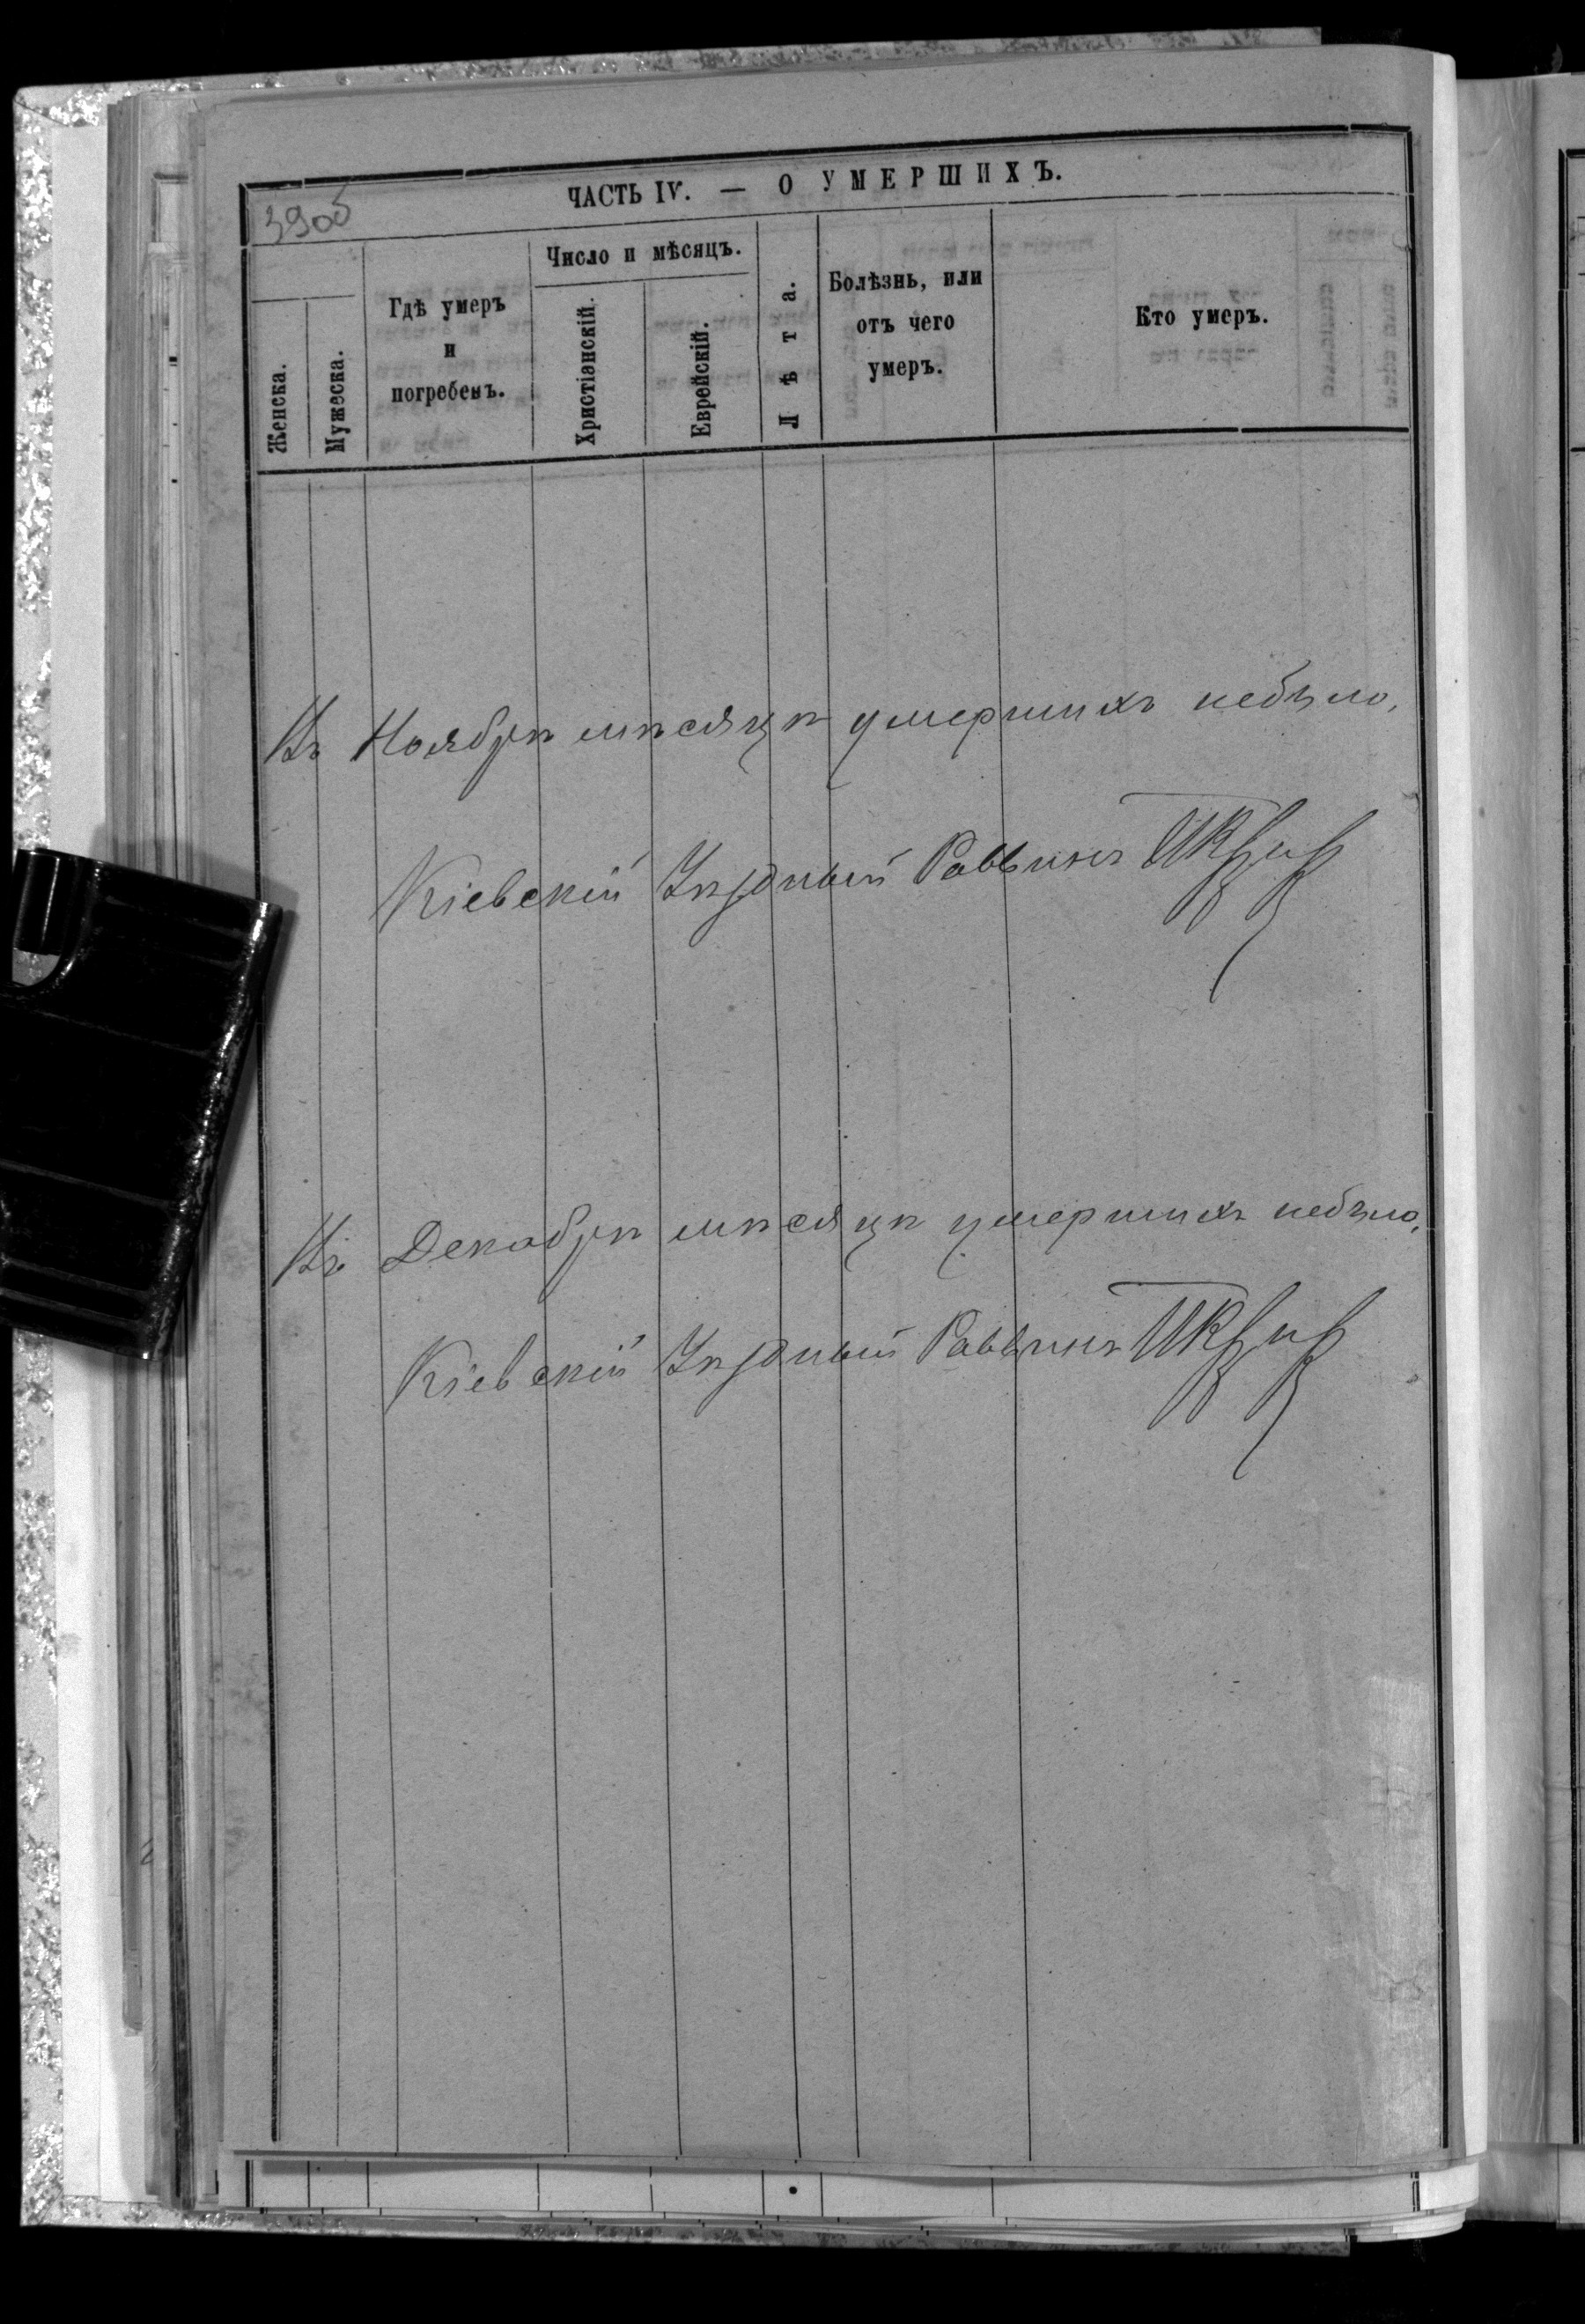 ЧАСТЬ IV. — О УМЕРШИХЪ.
Женска.
Мужеска.
Гдѣ умеръ
и
погребенъ.
Число и мѣсяцъ.
Христіанскій.
Еврейскій.
Лѣта.
Болѣзнь, или
отъ чего
умеръ.
Кто умеръ.
Въ Ноябрѣ мѣсяцѣ умершихъ небыло.
Кіевскій Уѣздный Раввинъ
Въ Декабрѣ мѣсяцѣ умершихъ небыло.
Кіевскій Уѣздный Раввинъ